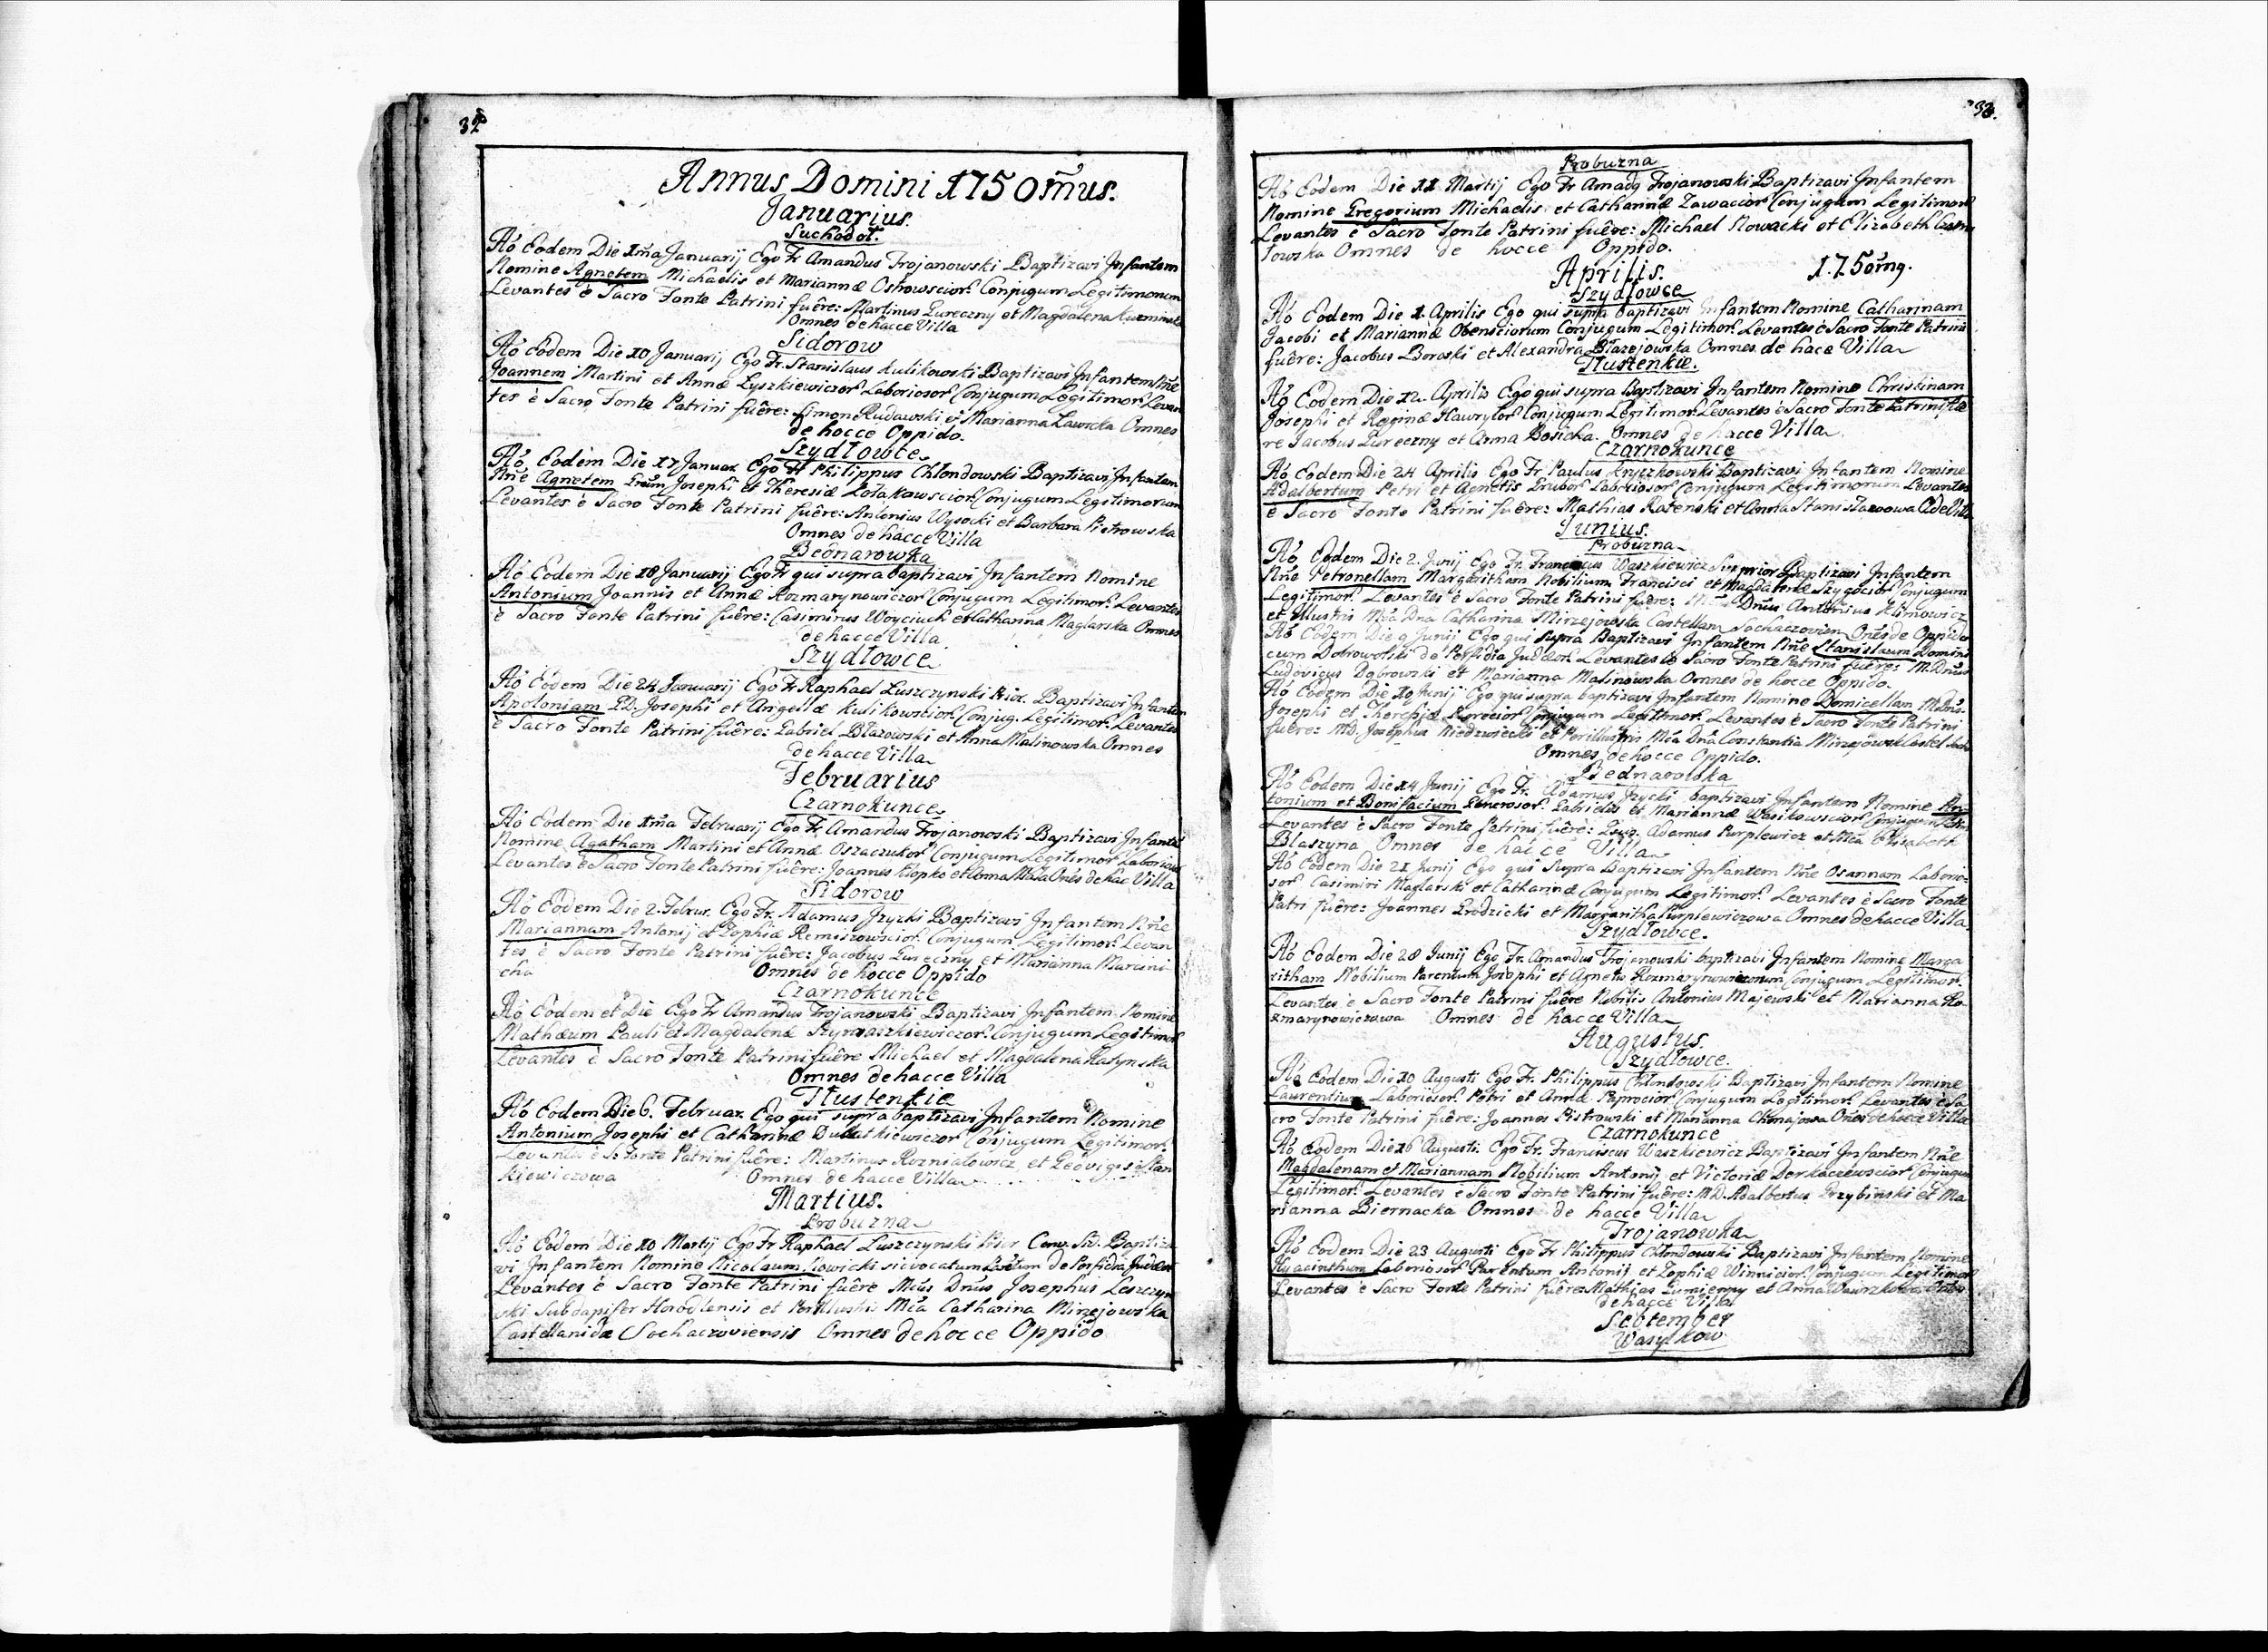 32
Annus Domini 1750mus.
Januarius.
Suchodoł.
Aō Eodem Die 1ma Januarij Ego Fr Amandus Trojanowski Baptizavi Infantem
Nomine Agnetem Michaelis et Mariannæ Ostrowscior: Conjugum Legitimorum
Levantes è Sacro Fonte Patrini fuêre: Martinus Gureczny et Magdalena
Omnes de hacce Villa
Sidorow
Aō Eodem Die 10 Januarij Ego Fr. Stanislaus Kulikowski Baptizavi Infantem Nñe
Joannem Martini et Annæ Lyszkiewiczor: Laboriosor: Conjugum Legitimor: Levan
tes è Sacro Fonte Patrini fuêre: Simon Rudawski et Marianna Ławicka Omnes
de hocce Oppido.
Szydłowce
Aō Eodem Die 17 Januar. Ego Fr Philippus Chlondowski Baptizavi Infantem
Nñe Agnetem Josephi et Theresiæ Polakowscior: Conjugum Legitimorum
Levantes è Sacro Fonte Patrini fuêre: Antonius Wysocki et Barbara Pietrowska
Omnes de hacce Villa
Bednarowka
Aō Eodem Die 18 Januarij Ego Fr qui supra baptizavi Infantem Nomine
Antonium Joannis et Annæ Rozmarynowiczor: Conjugum Legitimor: Levantes
è Sacro Fonte Patrini fuêre: Casimirus Woyciuch et Catharina Maglarska Omnes
de hacce Villa
Szydłowce
Aō Eodem Die 24 Januarij Ego Fr Raphael Luszczynski Prior. Baptizavi Infantem
Apoloniam Josephi et Angelæ Kulikowscior: Conjug. Legitimor: Levantes
è Sacro Fonte Patrini fuêre: Gabriel Błazowski et Anna Malinowska Omnes
de hacce Villa
Februarius
Czarnokunce
Aō Eodem Die 1ma Februarij Ego Fr. Amandus Trojanowski Baptizavi Infantē
Nomine Agatham Martini et Annæ Oszaczukor: Conjugum Legitimor:
Levantes è Sacro Fonte Patrini fuêre: Joannes Kiopko et Anna Onēs de hac Villa
Sidorow
Aō Eodem Die 2. Febrar. Ego Fr. Adamus Jzycki Baptizavi Infantem Nñe
Mariannam Antonij et Zophiæ Remiszowscior: Conjugum Legitimor: Levan
tes è Sacro Fonte Patrini fuêre: Jacobus Gureczny et Marianna Marcini
cha Omnes de hocce Oppido
Czarnokunce
Aō Eodem et Die Ego Fr Amandus Trojanowski Baptizavi Infantem Nomine
Mathæum Pauli et Magdalenæ Szymaszkiewiczor: Conjugum Legitimor
Levantes è Sacro Fonte Patrini fuêre Michael et Magdalena
Omnes de hacce Villa
Tłustenkie
Aō Eodem Die 6. Februar. Ego qui supra baptizavi Infantem Nomine
Antonium Josephi et Catharinæ Dulatkiewiczor: Conjugum Legitimor:
è S. Fonte Patrini fuêre: Martinus Rozniatowicz, et Hedvigis Stan
kiewiczowa Omnes de hacce Villa
Martius.
Probuzna
Aō Eodem Die 10 Martij Ego Fr Raphael Luszczynski Prior Conv. Sid. Baptiza
vi Infantem Nomine Nicolaum Nowicki sic vocatum de Perfidia Judæor
Levantes è Sacro Fonte Patrini fuêre Mcus Dnus Josephus Leszczyn
ski Subdapifer Horodlensis et Perillustris Mca Catharina Minejowska
Castellanida Sochaczoviensis Omnes de hocce Oppido
33.
Probuzna
Aō Eodem Die 11 Martij Ego Fr Amadg Trojanowski Baptizavi Infantem
Nomine Gregorium Michaelis et Catharinæ Zawacior: Conjugum Legitimor
Levantes è Sacro Fonte Patrini fuêre: Michael Nowacki et Elizabeth
towska Omnes de hocce Oppido.
Aprilis. 1750mg.
Szydłowce
Aō Eodem Die 1. Aprilis Ego qui supra baptizavi Infantem Nomine Catharinam
Jacobi et Mariannæ Obensciorum Conjugum Legitimor: Levantes è Sacro Fonte Patrini
fuêre: Jacobus Boroski et Alexandra Błazejowska Omnes de hacce Villa
Tłustenkie.
Aō Eodem Die 12. Aprilis Ego qui supra Baptizavi Infantem Nomine Christinam
Josephi et Reginæ Hawrylor: Conjugum Legitimor: Levantes è Sacro Fonte Patrini fue
re Jacobus Gureczny et Anna Bosicka. Omnes de hacce Villa
Czarnokunce
Aō Eodem Die 24 Aprilis Ego Fr Paulus Kryczkowski Baptizavi Infantem Nomine
Adalbertum Petri et Agnetis Grubor: Laboriosor: Conjugum Legitimorum Levantes
è Sacro Fonte Patrini fuêre: Mathias Ratenski et Anna
Junius.
Probuzna
Aō Eodem Die 2. Junij Ego Fr. Franciscus Waszkiewicz Supprior Baptizavi Infantem
Nñe Petronellam Margaritham Nobilium Francisci et Magdalenæ Conjugum
Legitimor: Levantes è Sacro Fonte Patrini fuêre: Dnus Antonius Klimowicz
et Illustris Mca Dna Catharina Minzejowska Castellan Sochaczovien Onēs de Oppido
Aō Eodem Die 9 Junij Ego qui supra Baptizavi Infantem Nñe Stanislaum Domini
cum Dobrowolski de Perfidia Judæor: Levantes è Sacro Fonte Patrini fuêre: M. Dnus
Ludovicus Dąbrowski et Marianna Malinowska Omnes de hocce Oppido.
Aō Eodem Die 19 Junij Ego qui supra baptizavi Infantem Nomine Domicellam
Josephi et Theresiæ Conjugum Legitimor: Levantes è Sacro Fonte Patrini
fuêre: MD. Josephus Niedzwiecki et Perillustris Mca Dna Constantia
Omnes de hocce Oppido.
Bednarowka
Aō Eodem Die 14 Junij Ego Fr. Adamus Jzycki baptizavi Infantem Nomine An
tonium et Bonifacium Generosor: Gabrielis et Mariannæ Wasikowscior: Conjugum
Levantes è Sacro Fonte Patrini fuêre: Adamus Purplewicz et Mca Elisabeth
Blaszyna Omnes de hacce Villa
Aō Eodem Die 21 Junij Ego qui Supra Baptizavi Infantem Nñe Osannam Laborio-
sor: Casimiri Maglarski et Catharinæ Conjugum Legitimor: Levantes è Sacro Fonte
Patri fuêre: Joannes Grodzicki et Margaritha Purplewiczowa Omnes de hacce Villa
Szydłowce.
Aō Eodem Die 28 Junij Ego Fr. Amandus Trojanowski baptizavi Infantem Nomine Marga
ritham Nobilium Parentum Josephi et Agnetis Rozmarynowiczorum Conjugum Legitimor.
Levantes è Sacro Fonte Patrini fuêre Nobilis Antonius Majewski et Marianna Ro-
zmarynowiczowa Omnes de hacce Villa
Augustus.
Szydłowce.
Aō Eodem Die 10 Augusti Ego Fr. Philippus Chlondowski Baptizavi Infantem Nomine
Laurentium Laboriosor: Petri et Annæ Paprocior: Conjugum Legitimor: Levantes è Sa
cro Fonte Patrini fuêre: Joannes Pistrowski et Marianna Onēs de hacce Villa
Czarnokunce
Aō Eodem Die 16 Augusti. Ego Fr. Franciscus Waszkiewicz Baptizavi Infantem Nñe
Magdalenam et Mariannam Nobilium Antonij et Victoriæ Derkaczewscior: Conjugum
Legitimor: Levantes è Sacro Fonte Patrini fuêre: MD. Adalbertus Grzybinski et Ma
rianna Biernacka Omnes de hacce Villa
Trojanowka
Aō Eodem Die 23 Augusti Ego Fr Philippus Chlondowski Baptizavi Infantem Nomine
Hyacinthum Laboriosor: Parentum Antonij et Zophiæ Winnicior: Conjugum Legitimor
Levantes è Sacro Fonte Patrini fuêre Mathias et Anna
de hacce Villa
September
Wasylkow